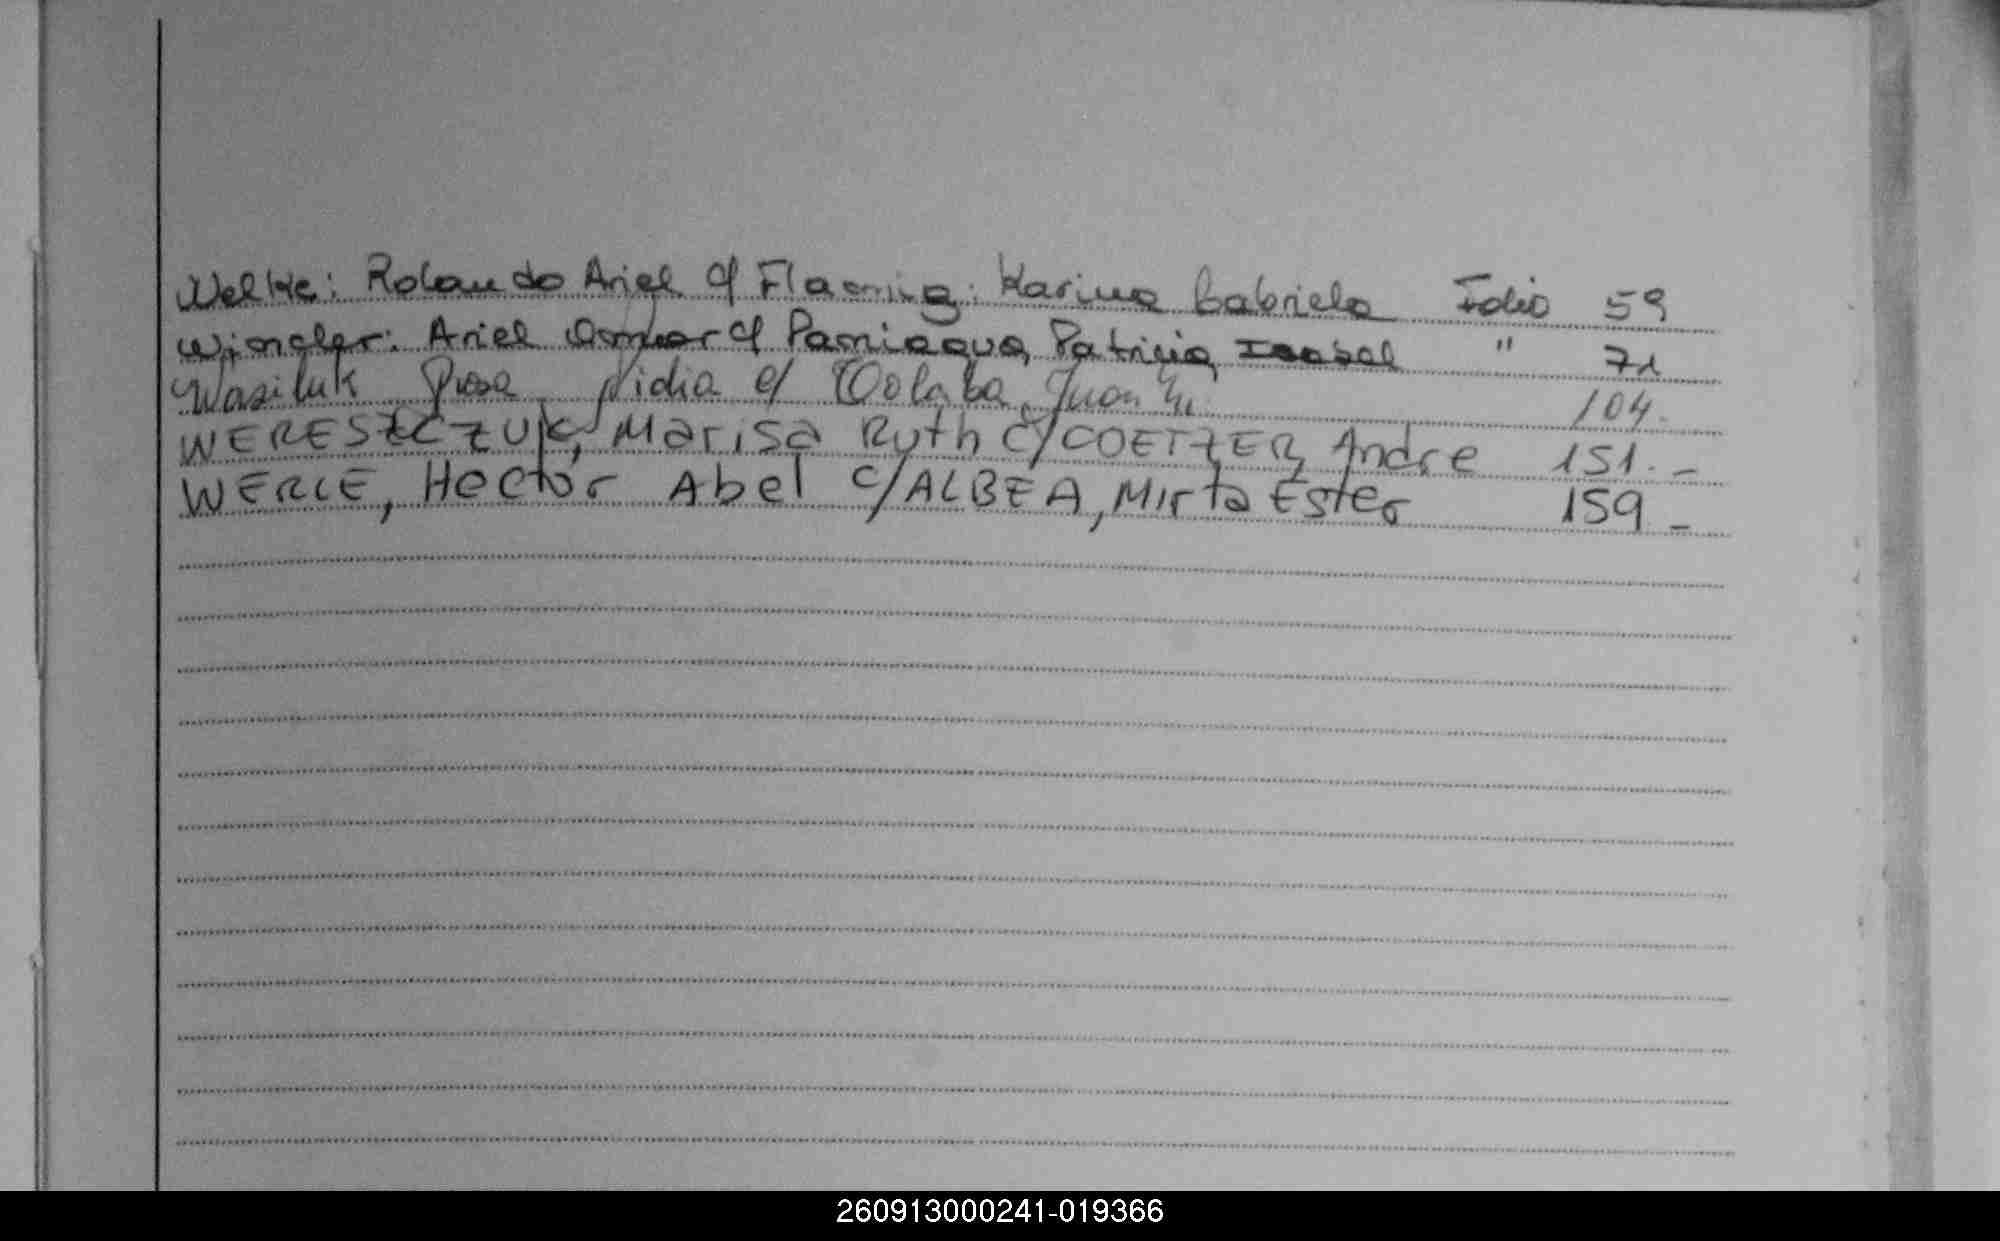 Welke: Rolando Ariel c/ Flaming: Karina Gabriela Folio 59
Wingler: Ariel Omar c/ Paniagua, Patricia Isabel " 71
Wasiluk Rosa Nidia c/ Dolaba, Juan 104.
WERESZCZUK, Marisa Ruth c/COETZER, Andre 151.-
WERLE, Hector Abel c/ALBEA, Mirta Ester 159-
260913000241-019366